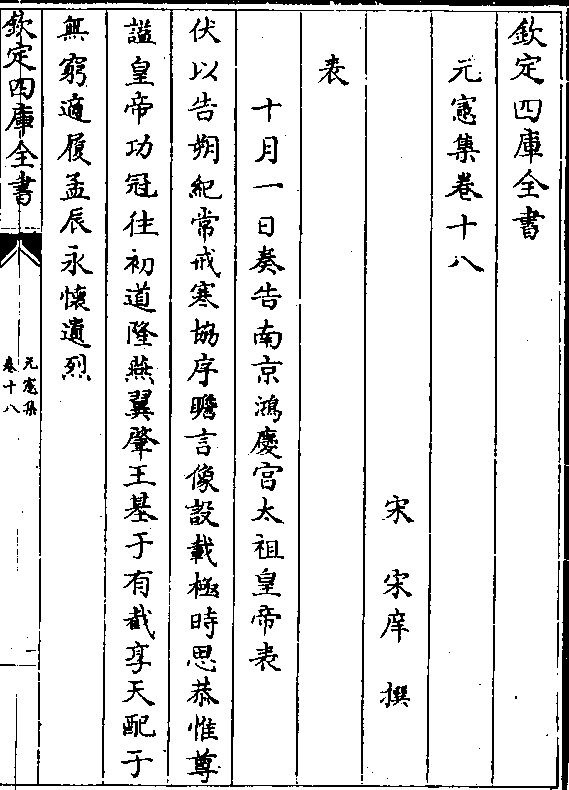 欽定四庫全書
元憲集卷十八
宋 宋庠 撰
表
十月一日奏告南京鴻慶宮太祖皇帝表
伏以告朔紀常戒寒協序瞻言像設載極時思恭惟尊
謚皇帝功冠往初道隆燕翼肇王基于有截享天配于
無窮適履孟辰永懷遺烈
欽定四庫全書
元憲集
卷十八
一